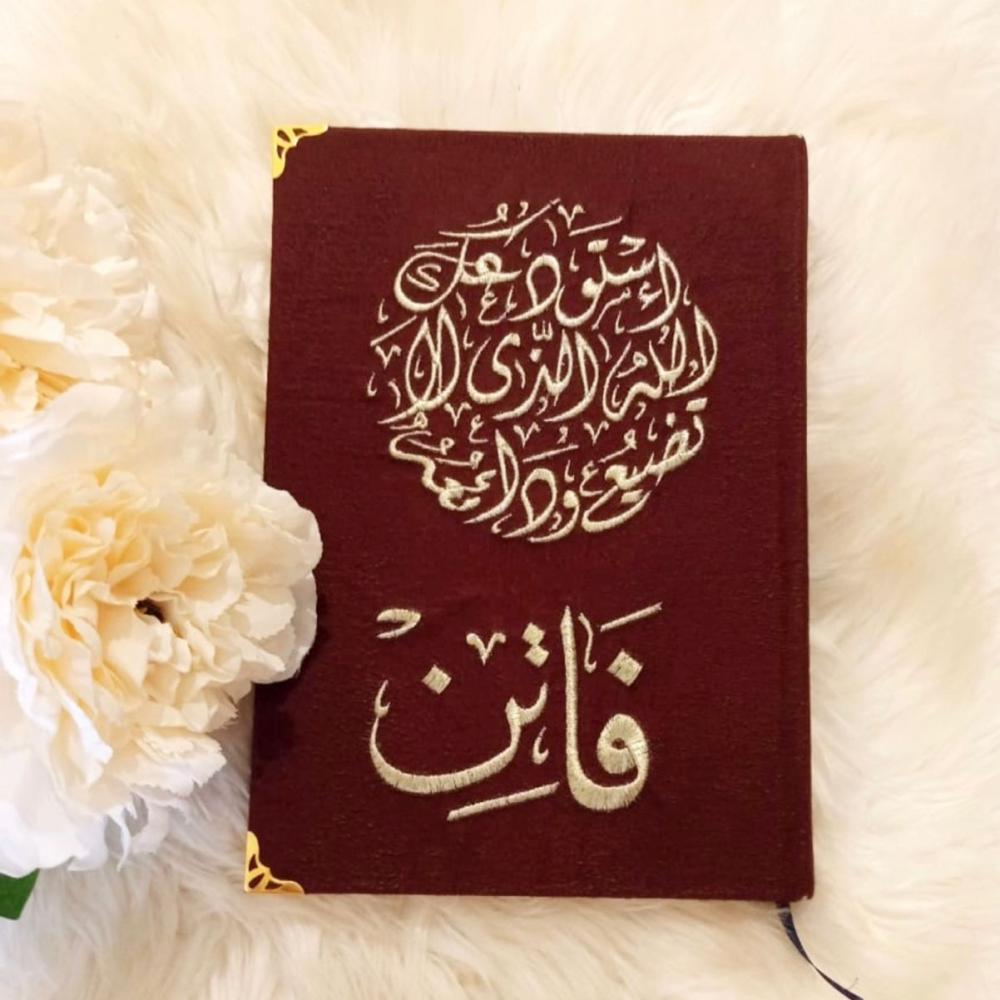 أستودعك
الله الذي لا
تضيع ودائعه
فَاتِنْ